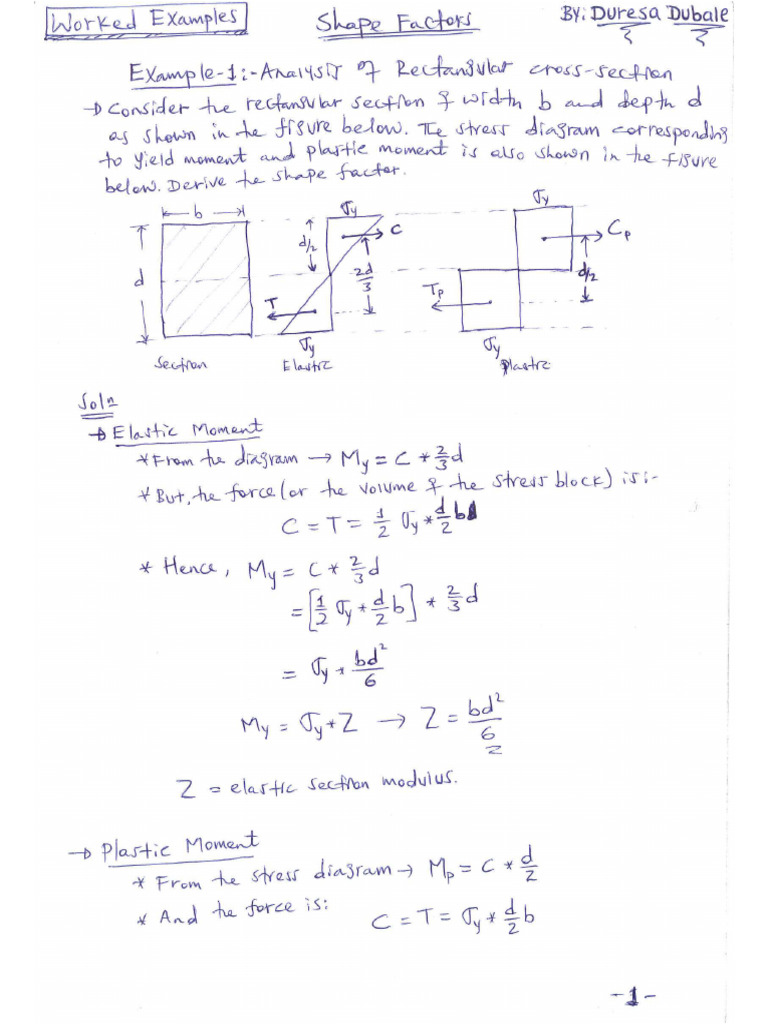 Worked Examples
Shape Factors
By: Duresa Dubale
Example-1:- Analysis of Rectangular cross-section
→ Consider the rectangular section of width b and depth d
as shown in the figure below. The stress diagram corresponding
to yield moment and plastic moment is also shown in the figure
below. Derive the shape factor.
b
d
Section
σy
d/2
C
2d/3
T
σy
Elastic
σy
Cp
d/2
Tp
σy
Plastic
Soln
→ Elastic Moment
* From the diagram → My = C * 2/3 d
* But, the force (or the volume of the stress block) is:-
C = T = 1/2 σy * d/2 b
* Hence, My = C * 2/3 d
= [1/2 σy * d/2 b] * 2/3 d
= σy * bd²/6
My = σy * Z → Z = bd²/6
Z = elastic section modulus.
→ Plastic Moment
* From the stress diagram → Mp = C * d/2
* And the force is:
C = T = σy * d/2 b
-1-